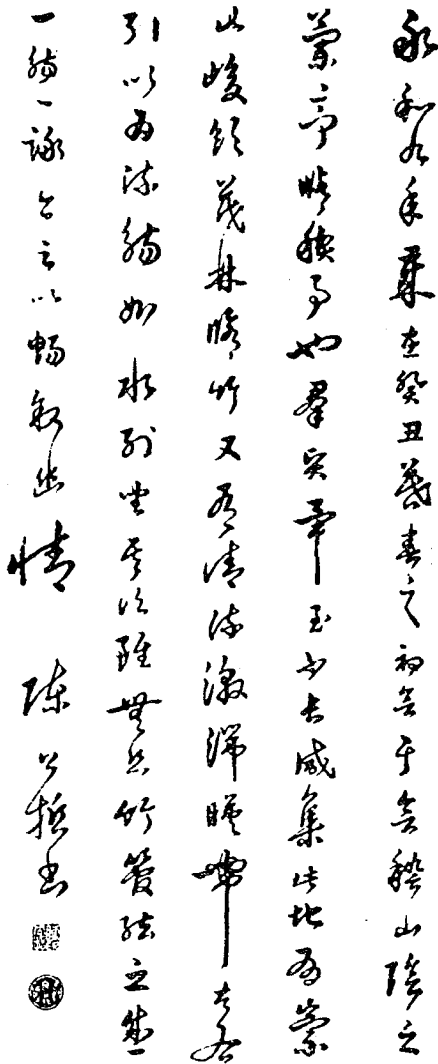 永和九年歲在癸丑暮春之初會于會稽山陰之
蘭亭脩稧事也羣賢畢至少長咸集此地有崇
山峻領茂林脩竹又有清流激湍暎帶左右
引以為流觴曲水列坐其次雖無絲竹管絃之盛
一觴一詠亦足以暢敘幽情 陳公哲書